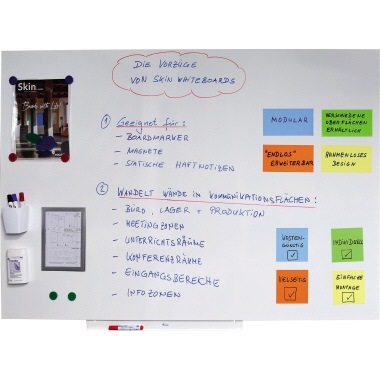 Skin
DIE VORZÜGE
VON SKIN WHITEBOARDS
① Geeignet für:
- BOARDMARKER
- MAGNETE
- STATISCHE HAFTNOTIZEN
MODULAR
VERSCHIEDENE
OBERFLÄCHEN
ERHÄLTLICH
"ENDLOS"
ERWEITERBAR
RAHMENLOSES
DESIGN
② WANDELT WÄNDE IN KOMMUNIKATIONSFLÄCHEN:
- BÜRO, LAGER + PRODUKTION
- MEETINGZONEN
- UNTERRICHTSRÄUME
- KONFERENZRÄUME
- EINGANGSBEREICHE
- INFOZONEN
KOSTEN-
GÜNSTIG
INDIVIDUELL
VIELSEITIG
EINFACHE
MONTAGE